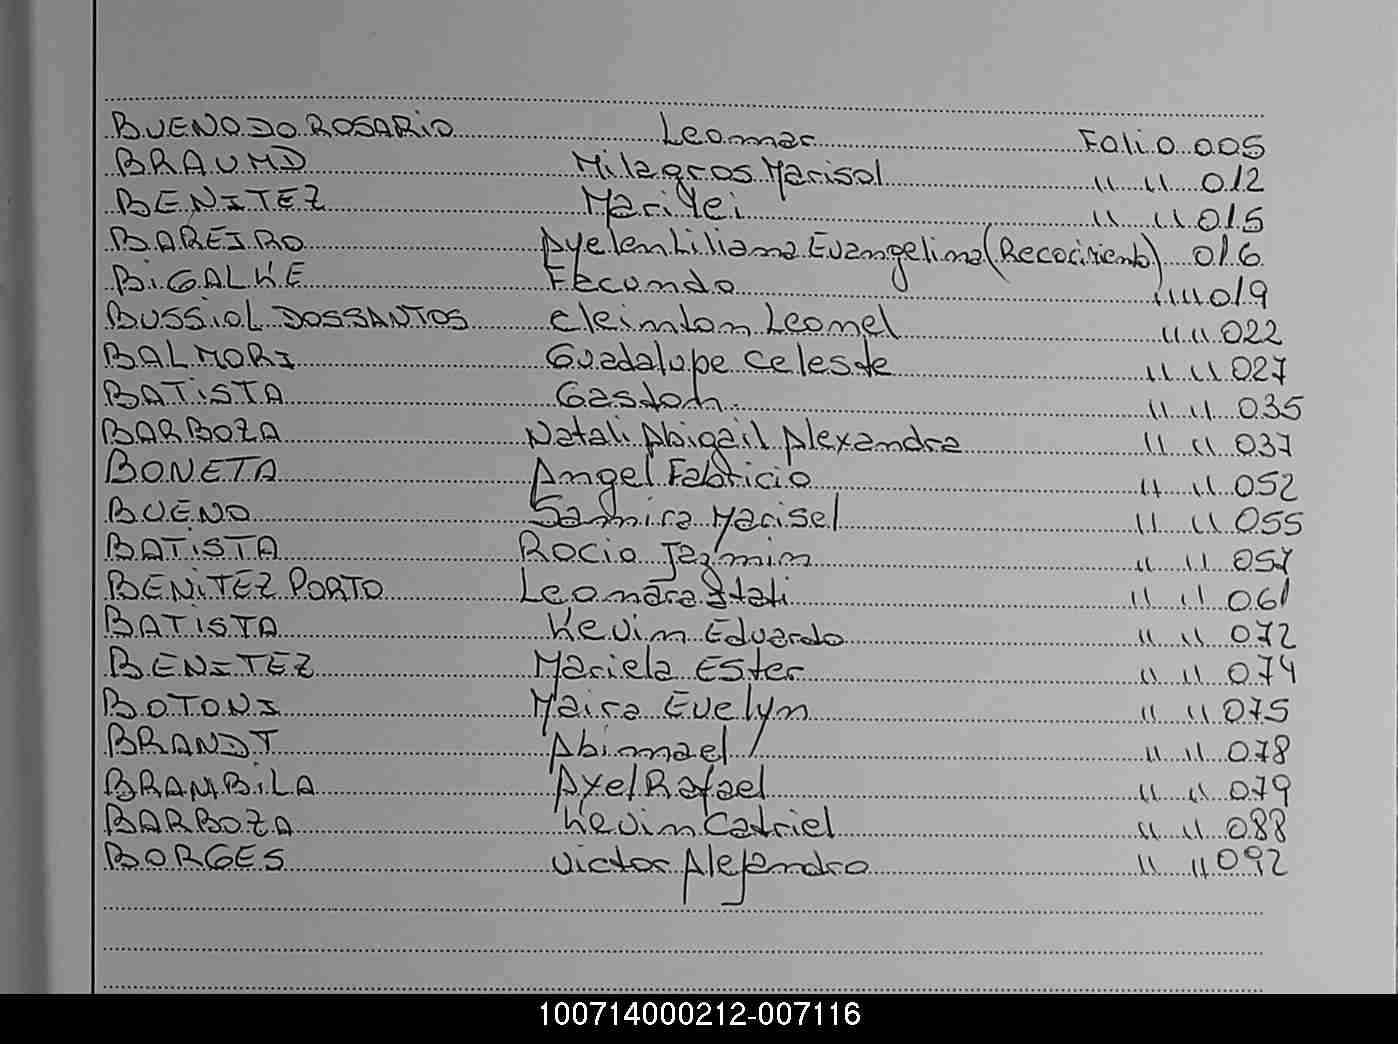 BUENO DO ROSARIO Leomar Folio 005
BRAUND Milagros Marisol " " 012
BENITEZ Marilei " " 015
BAREIRO Ayelen Liliana Evangelina (Recocimiento) 016
BiGALKE Facundo " " 019
BUSSiOL DOSSANTOS Cleinton Leonel " " 022
BALMORI Guadalupe Celeste " " 027
BATiSTA Gaston " " 035
BARBOZA Natali Abigail Alexandra " " 037
BONETA Angel Fabricio " " 052
BUENO Samira Marisel " " 055
BATiSTA Rocio Jazmin " " 057
BENiTEZ PORTO Leonara Itati " " 061
BATiSTA Kevin Eduardo " " 072
BENITEZ Mariela Ester " " 074
BOTONI Maira Evelyn " " 075
BRANDT Abinael " " 078
BRAMBiLA Axel Rafael " " 079
BARBOZA Kevin Catriel " " 088
BORGES Victor Alejandro " " 092
100714000212-007116